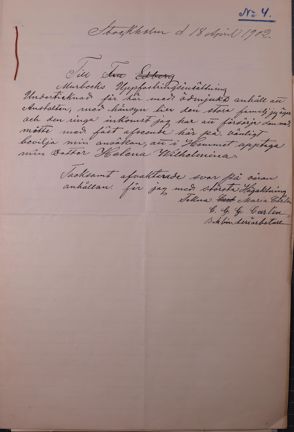 No 4.
Stockholm d 18 April 1902.
Till Fru Edberg
Murbecks Uppfostringsinrättning
Undertecknad får här med ödmjukt anhålla att
Anstalten, med hänsyn till den stora familj jag äger
och den ringa inkomst jag har att försörja den med,
måtte med fäst afseende här på, vänligt
bevilja min ansökan, att i Hemmet upptaga
min dotter Helena Wilhelmina.
Tacksamt afvaktande svar på våran
anhållan får jag med största Högaktning
Tekna Maria
C. G. G.
Bokbinderiarbetare